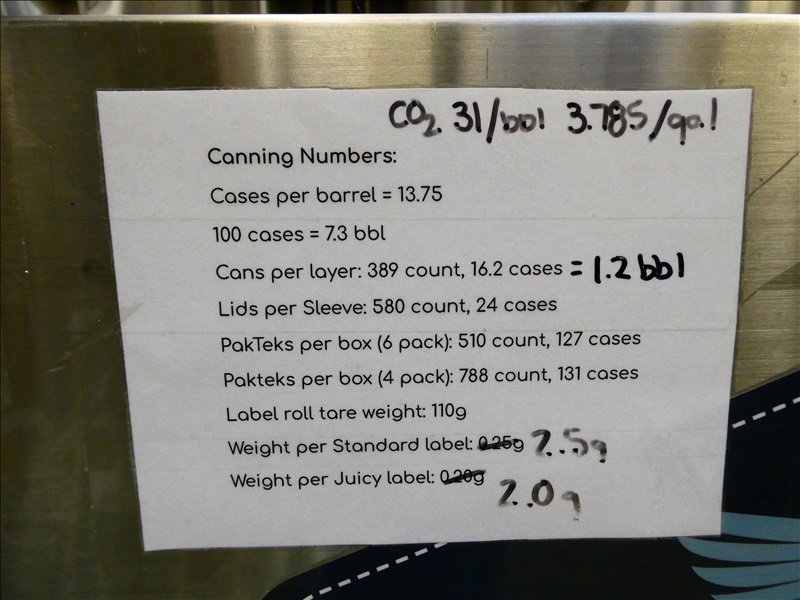 CO2. 31/bbl 3.785/gal
Canning Numbers:
Cases per barrel = 13.75
100 cases = 7.3 bbl
Cans per layer: 389 count, 16.2 cases = 1.2 bbl
Lids per Sleeve: 580 count, 24 cases
PakTeks per box (6 pack): 510 count, 127 cases
Pakteks per box (4 pack): 788 count, 131 cases
Label roll tare weight: 110g
Weight per Standard label: 0.25g 2.5g
Weight per Juicy label: 0.20g 2.0g